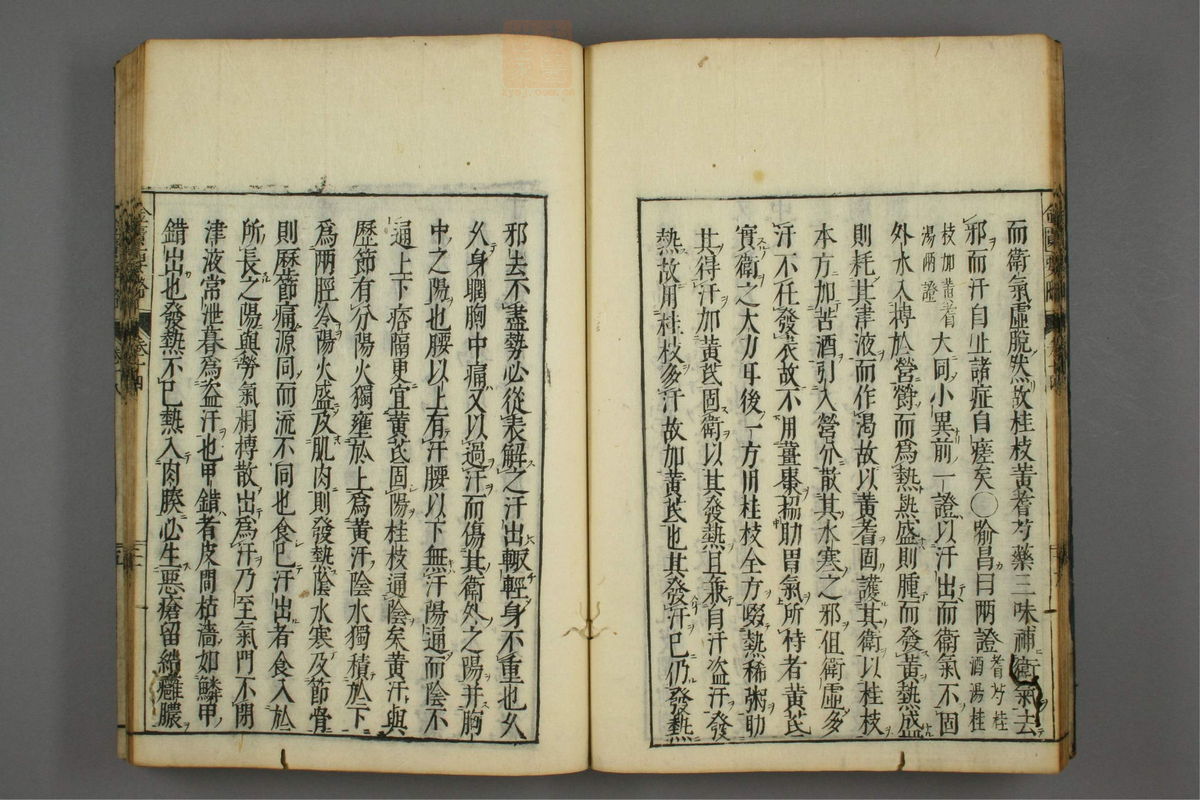 而衛氣虛脫然故桂枝黃耆芍藥三味補衛氣去
邪而汗自止諸症自瘥矣○喻昌曰兩證耆芍桂酒湯桂
枝加黃耆湯兩證大同小異前一證以汗出而衛氣不固
外水入搏於營鬱而爲熱熱盛則腫而發黃熱盛
則耗其津液而作渴故以黃耆固護其衛以桂枝
本方加苦酒引入營分散其水寒之邪但衛虛多
汗不任發表故不用薑棗協助胃氣所恃者黃芪
實衛之大力耳後一方用桂枝全方啜熱稀粥助
其得汗加黃芪固衛以其發熱且兼自汗盜汗發
熱故用桂枝多汗故加黃芪也其發汗已仍發熱
邪去不盡勢必從表解之汗出輒輕身不重也久
久身瞤胸中痛又以過汗而傷其衛外之陽并胸
中之陽也腰以上有汗腰以下無汗陽通而陰不
通上下痞隔更宜黃芪固陽桂枝通陰矣黃汗與
歷節有分陽火獨壅於上爲黃汗陰水獨積於下
爲兩脛冷陽火盛及肌肉則發熱陰水寒及節骨
則歷節痛源同而流不同也食已汗出者食入於
所長之陽與勞氣相摶散出爲汗乃至氣門不閉
津液常泄暮爲盜汗也甲錯者皮間枯濇如鱗甲
錯出也發熱不已熱入肉腠必生惡瘡留結癰膿